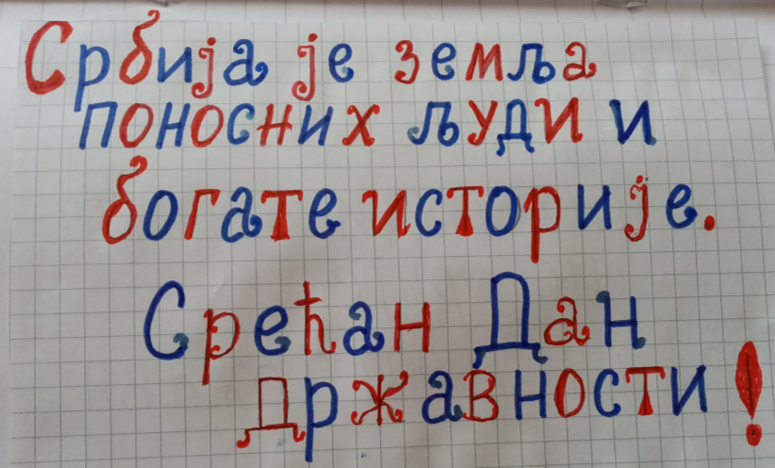 Србија је земља
поносних људи и
богате историје.
Срећан Дан
државности!